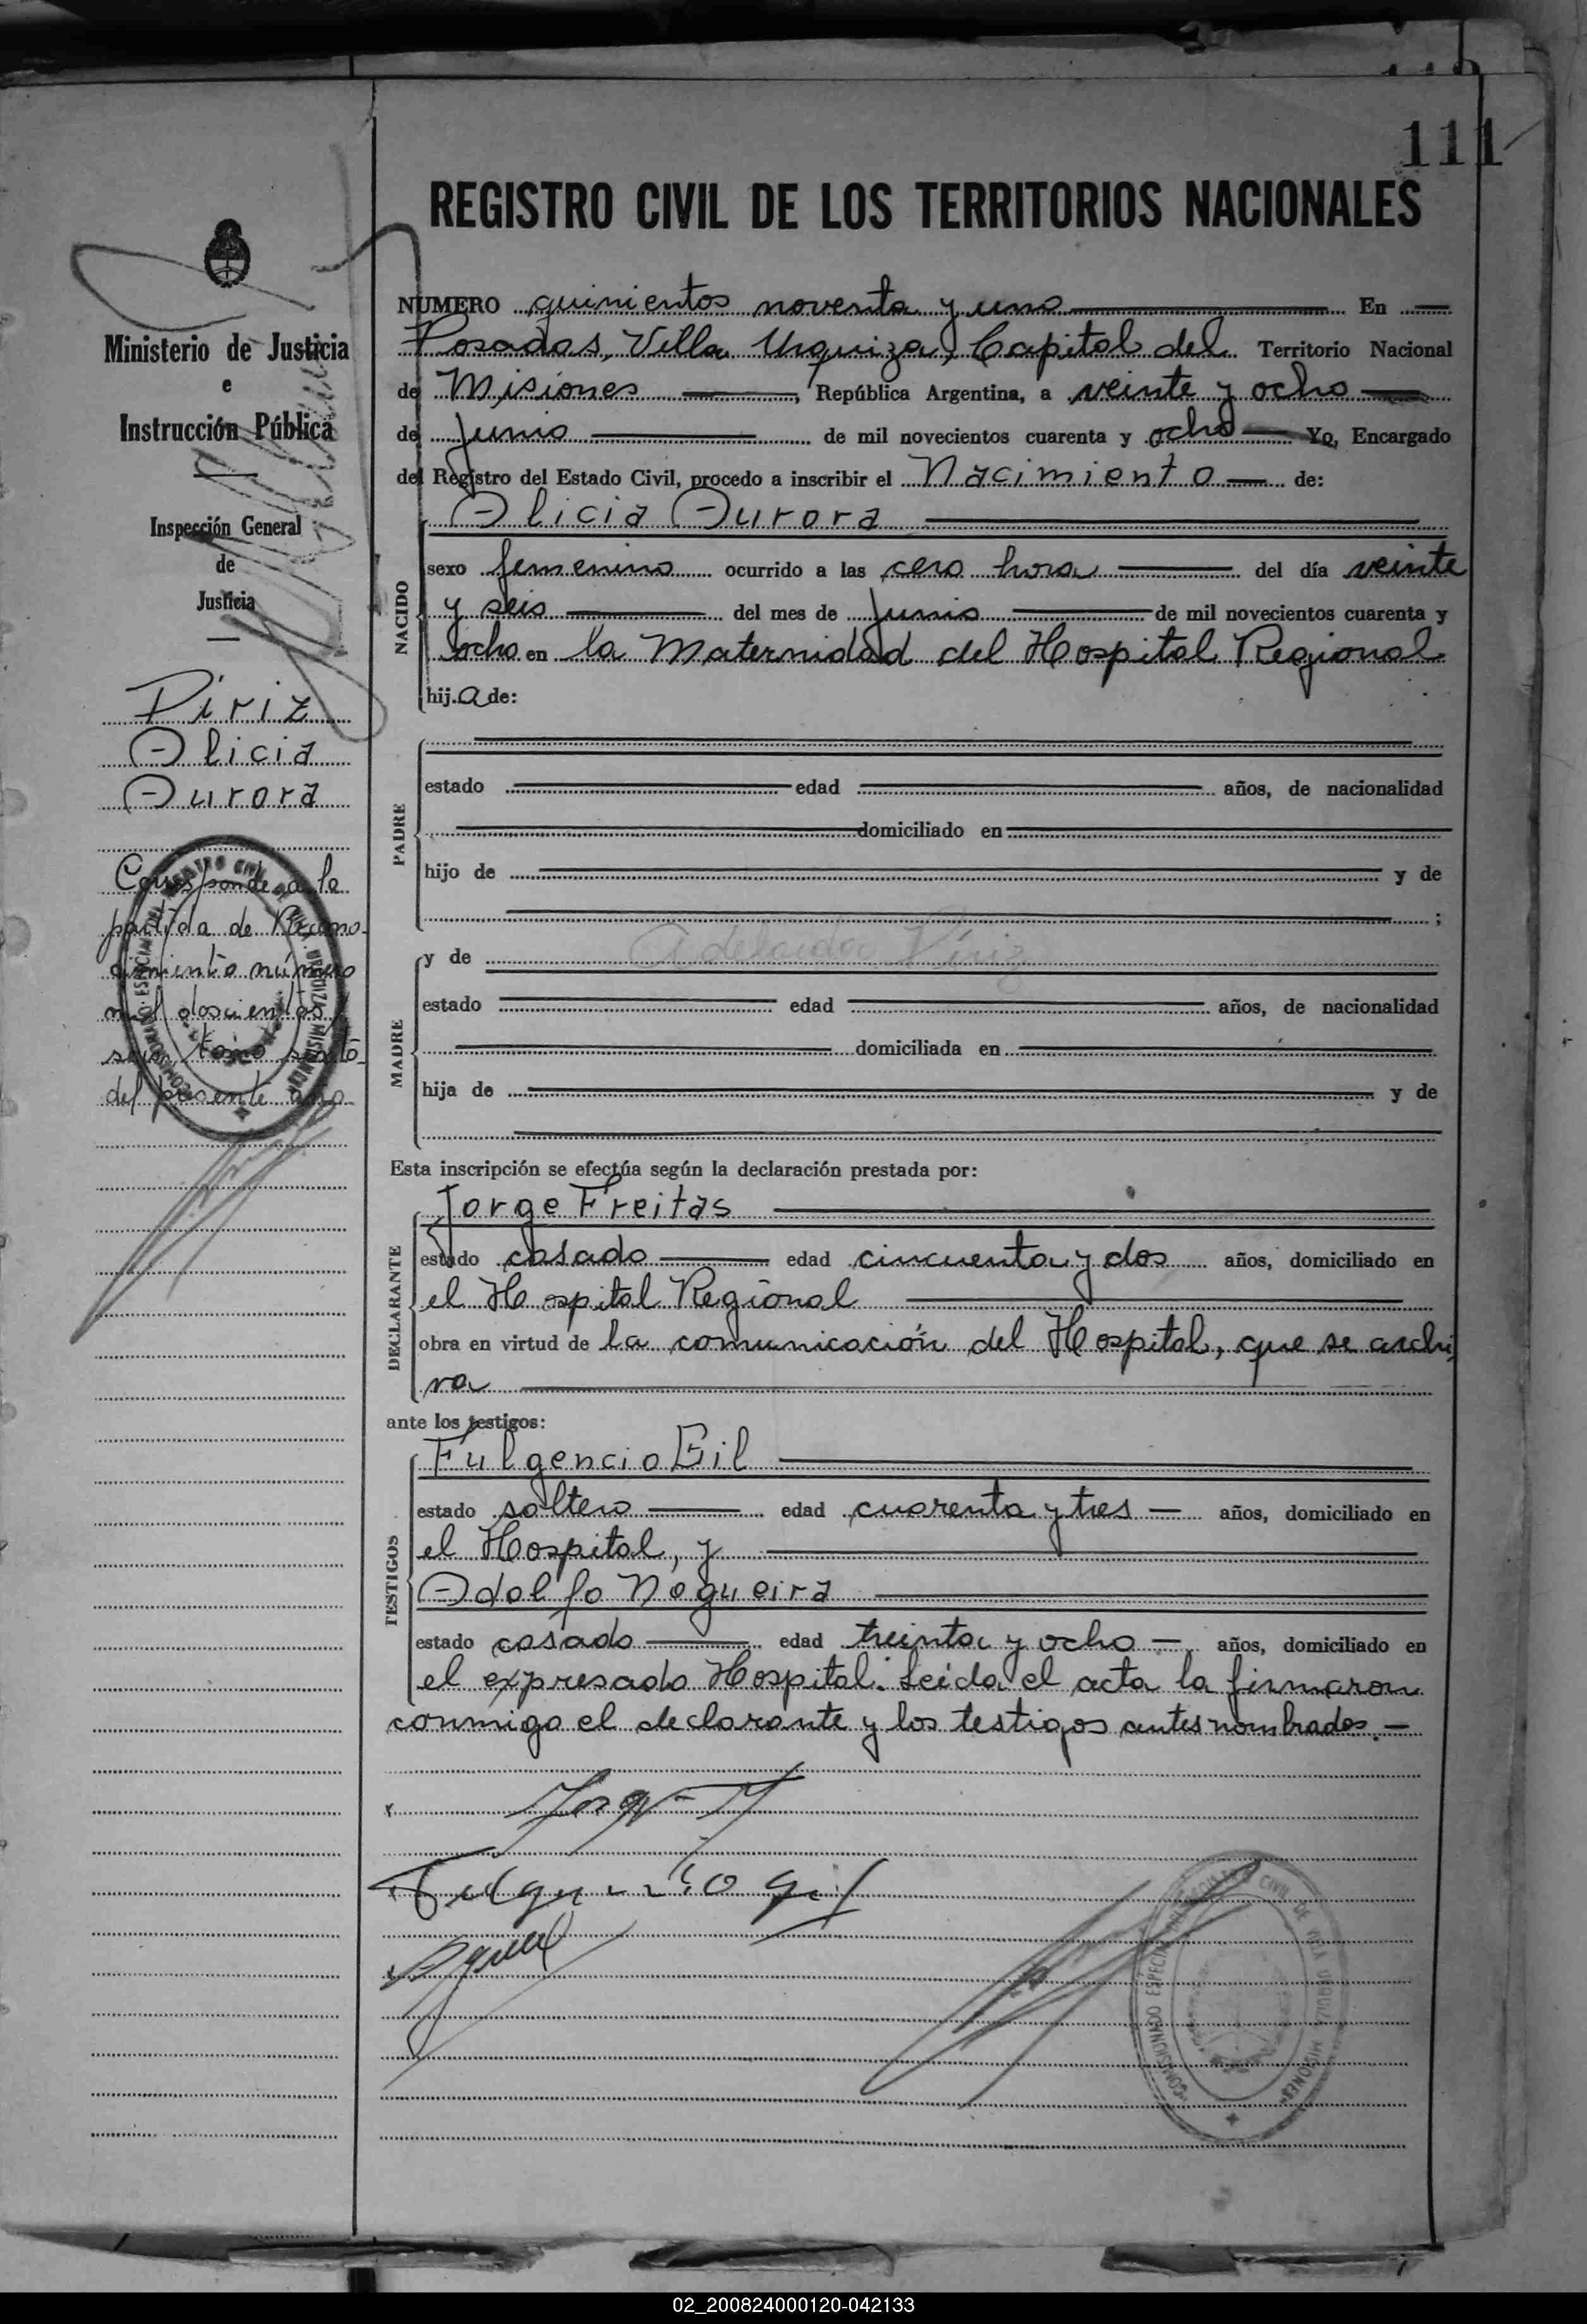 111
REGISTRO CIVIL DE LOS TERRITORIOS NACIONALES
Ministerio de Justicia
e
Instrucción Pública
Inspección General
de
Justicia
Piriz
Alicia
Aurora
Corresponde a la
partida de Recono-
cimiento número
mil doscientos
seis tomo sexto
del presente año
NUMERO quinientos noventa y uno En
Posadas, Villa Urquiza, Capital del Territorio Nacional
de Misiones, República Argentina, a veinte y ocho
de Junio de mil novecientos cuarenta y ocho Yo, Encargado
del Registro del Estado Civil, procedo a inscribir el Nacimiento de:
NACIDO
Alicia Aurora
sexo femenino ocurrido a las cero hora del día veinte
y seis del mes de Junio de mil novecientos cuarenta y
ocho en la Maternidad del Hospital Regional
hij.a de:
PADRE
estado edad años, de nacionalidad
domiciliado en
hijo de y de
;
MADRE
y de Adelaida Píriz
estado edad años, de nacionalidad
domiciliada en
hija de y de
Esta inscripción se efectúa según la declaración prestada por:
DECLARANTE
Jorge Freitas
estado casado edad cincuenta y dos años, domiciliado en
el Hospital Regional
obra en virtud de la comunicación del Hospital, que se archi
va
ante los testigos:
TESTIGOS
Fulgencio Gil
estado soltero edad cuarenta y tres años, domiciliado en
el Hospital, y
Adolfo Nogueira
estado casado edad treinta y ocho años, domiciliado en
el expresado Hospital. Leida el acta la firmaron
conmigo el declarante y los testigos antes nombrados.-
Fulgencio Gil
COMISIONADO ESPECIAL REGISTRO CIVIL DE VILLA URQUIZA MISIONES
02_200824000120-042133